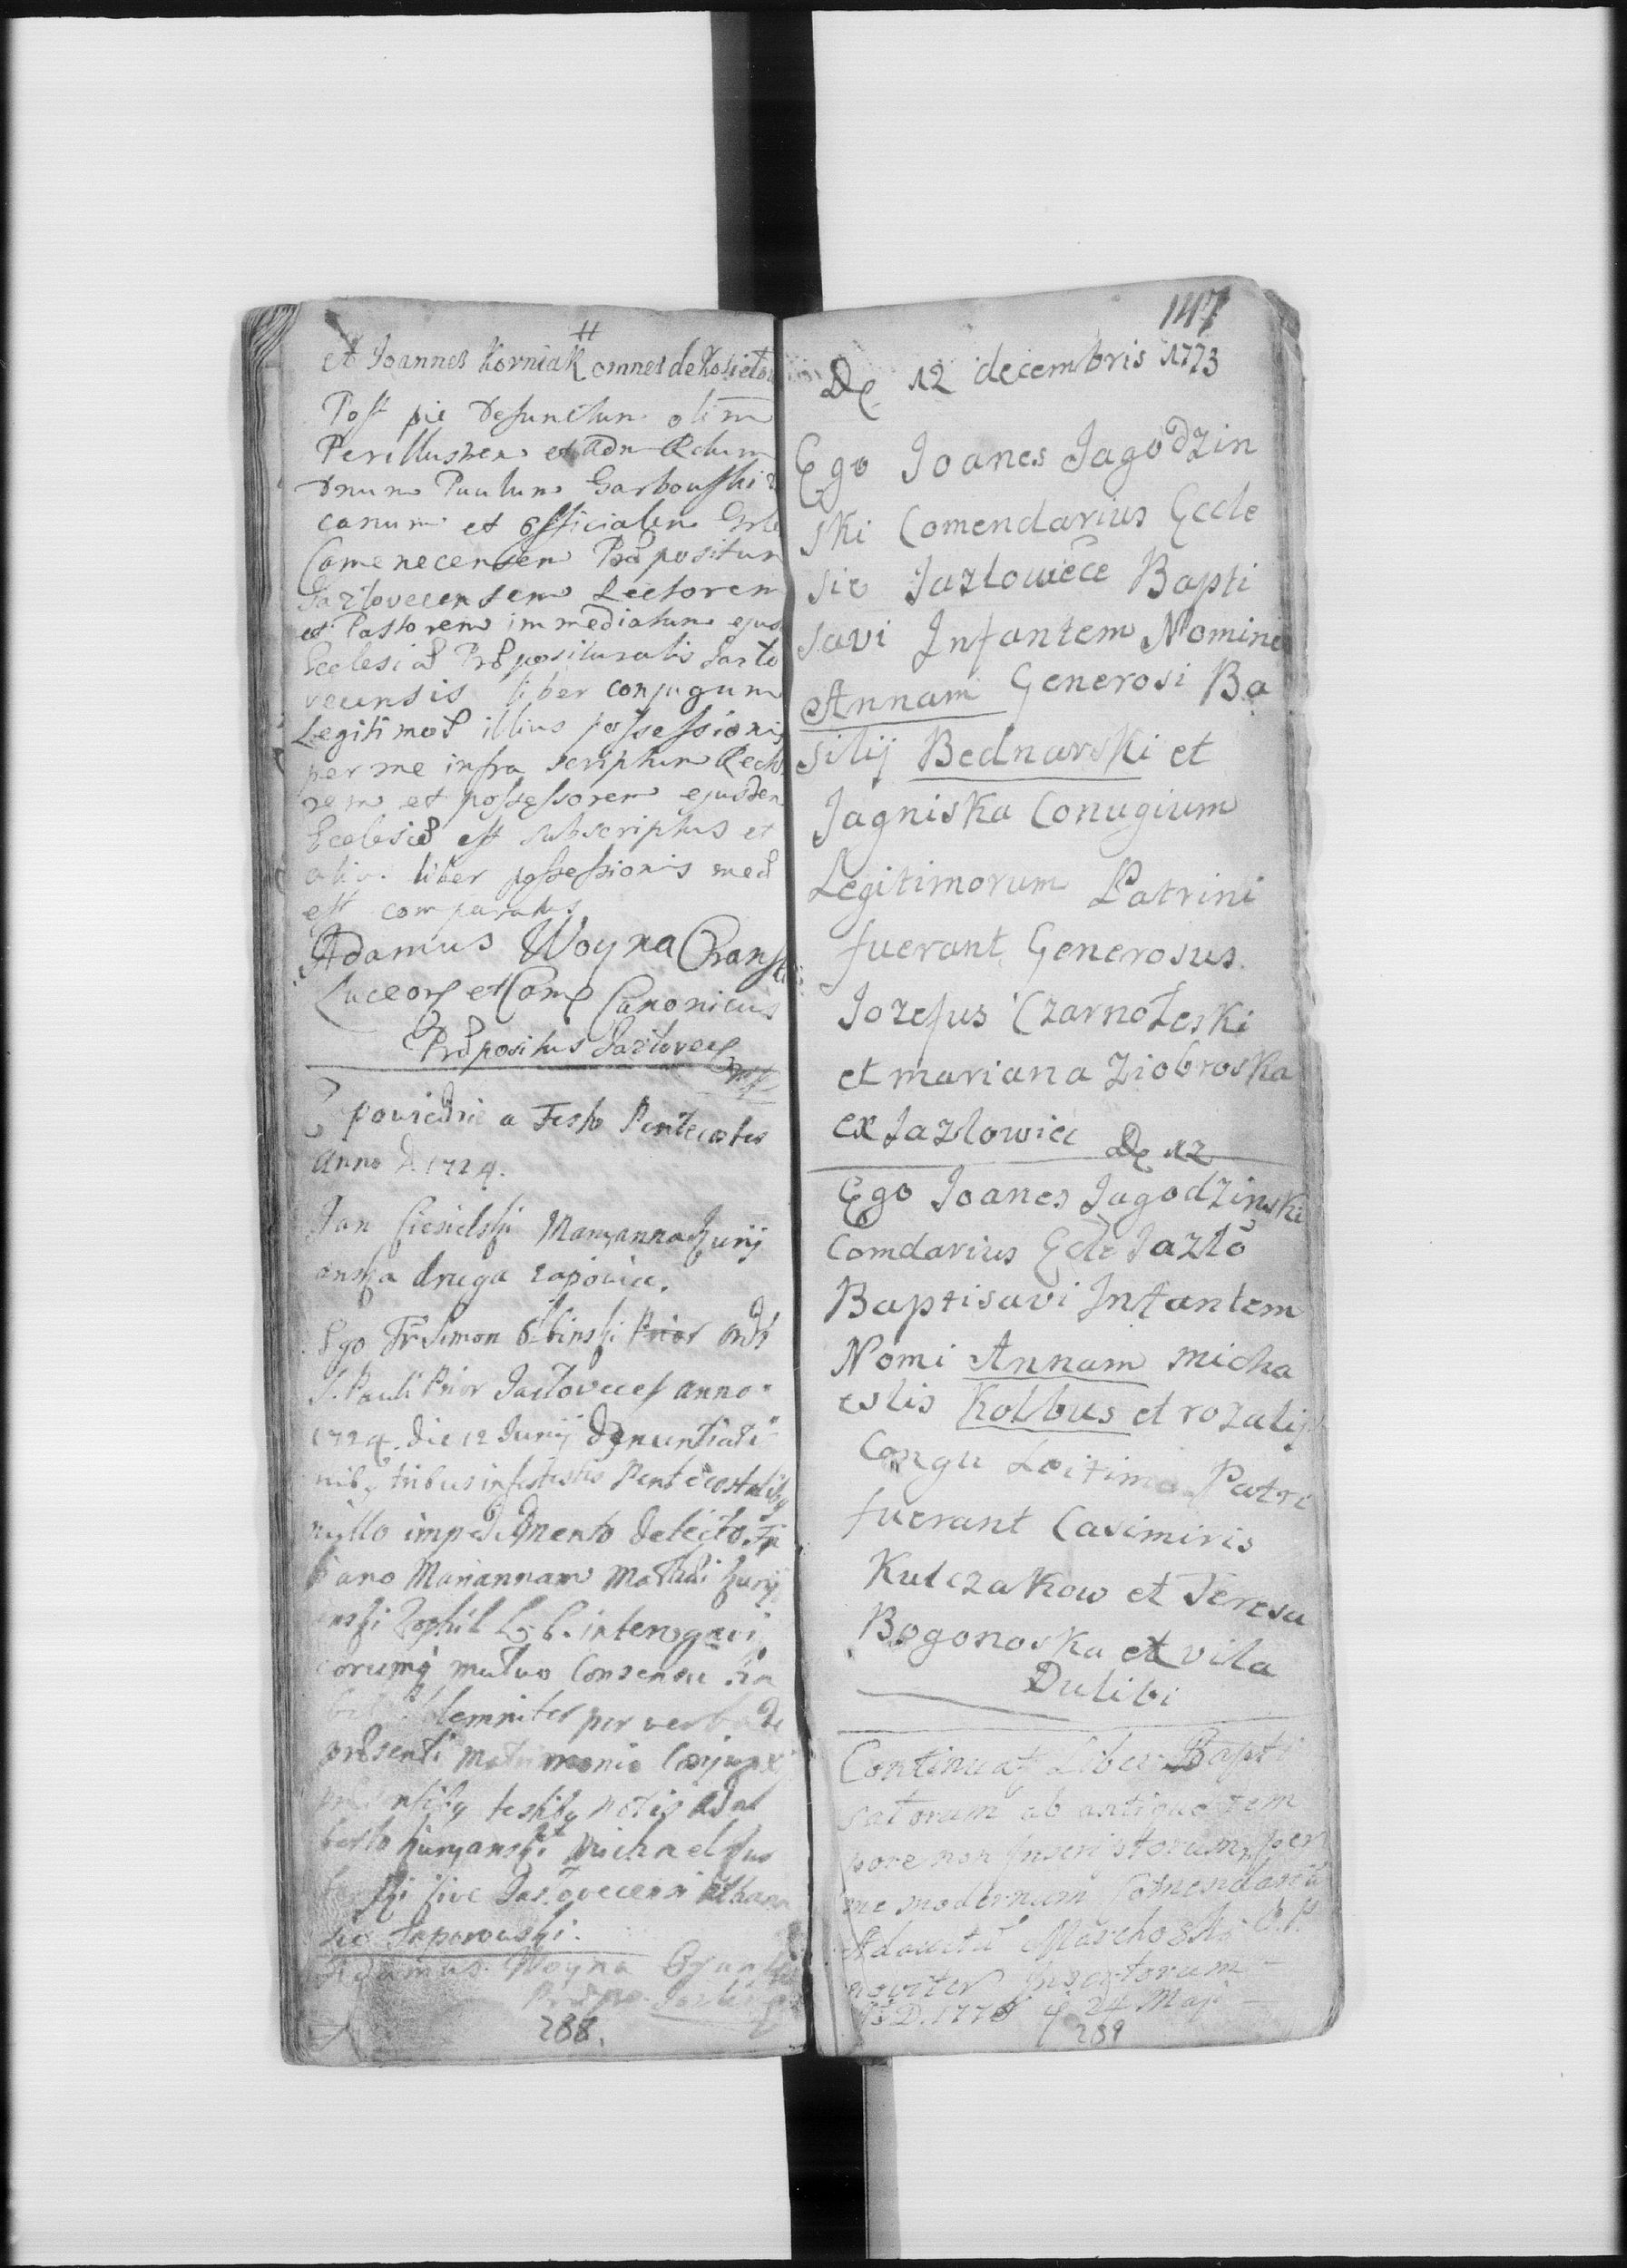 et Joannes Korniak omnes de Kosieło
Post pie Defunctum olim
Perillustrem et Adm Rdum
Dnum Paulum Garbowski
canum et officialem
Camenecensem Præpositum
Jazlovecensem Rectorem
et Pastorem immediatum ejus
Ecclesiæ Præposituralis Jazlo
vecensis liber conjugum
Legitimoꝝ illius possessionis
per me infra scriptum Recto
rem et possessorem ejusdem
Ecclesiæ est subscriptus et
liber possessionis meæ
est comparatus
Adamus Woyna Orański
Luceors et Cam Canonicus
Præpositus Jazlovec
powiedzie a Festo Pentecostes
Anno D 1724.
Jan Ciesielski Maryanna Jurij
anska druga zapowie.
Ego Fr Simon Prior Ord
S. Pauli Prior Jazlovecen anno
1724. die 12 Junij denuntiati
nibq tribus in festis Pentecostalibq
nullo impedimento detecto
Mariannam
L. C. interogavi
eorumq mutuo Consensu ha
lemniter per verba de
præsenti matrimonio Conjunxi
testibq notis Adal
berto Juryanski Michael
ski sive Jazlovecensi
Saporowski.
Adamus Woyna Orański
288.
147
D 12 decembris 1773
Ego Joanes Jagodzin
ski Comendarius Eccle
sie Jazlowiece Bapti
savi Infantem Nomine
Annam Generosi Ba
silij Bednarski et
Jagniska Conugium
Legitimorum Patrini
fuerant Generosus
Jozefus Czarnoleski
et mariana Ziobroska
ex Jazlowiec D 12
Ego Joanes Jagodzinski
Comdarius Ecle Jazlo
Baptisavi Infantem
Nomi Annam micha
eslis Kolbus et rozalij
Congu Loitima Patri
fuerant Casimiris
Kulczakow et Teresa
Bogonoska et vila
Dulibi
Continuat Liber Bapti
satorum ab antiquo tem
pore non Inscriptorum, per
me modernum Comendariu
Adauctu Marchoski O.P.
noviter Inscrptorum
A D. 177 24 Maji
289